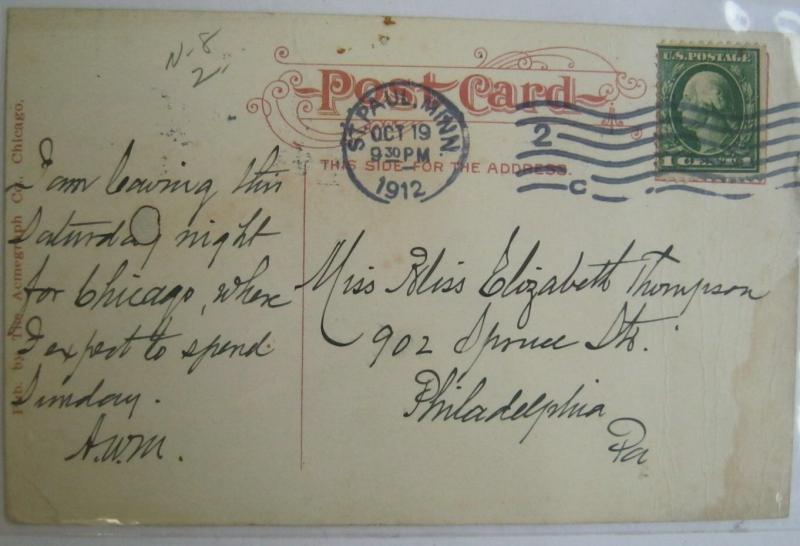 N-8
2.
Post Card
U.S. POSTAGE
1 CENT 1
ST. PAUL, MINN.
OCT 19
9 30 PM
1912
2
C
THIS SIDE FOR THE ADDRESS.
Pub. by The Acmegraph Co., Chicago.
I am leaving this
Saturday night
for Chicago, where
I expect to spend
Sunday.
A.W.M.
Miss Bliss Elizabeth Thompson
902 Spruce Str.
Philadelphia
Pa